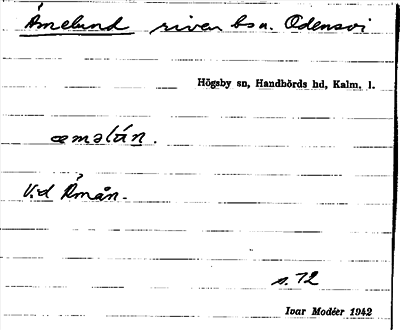 Åmelund riven bsn. Odensvi
Högsby sn, Handbörds hd, Kalm. l.
æməlún.
Vid Åmån.
s. 72
Ivar Modéer 1942